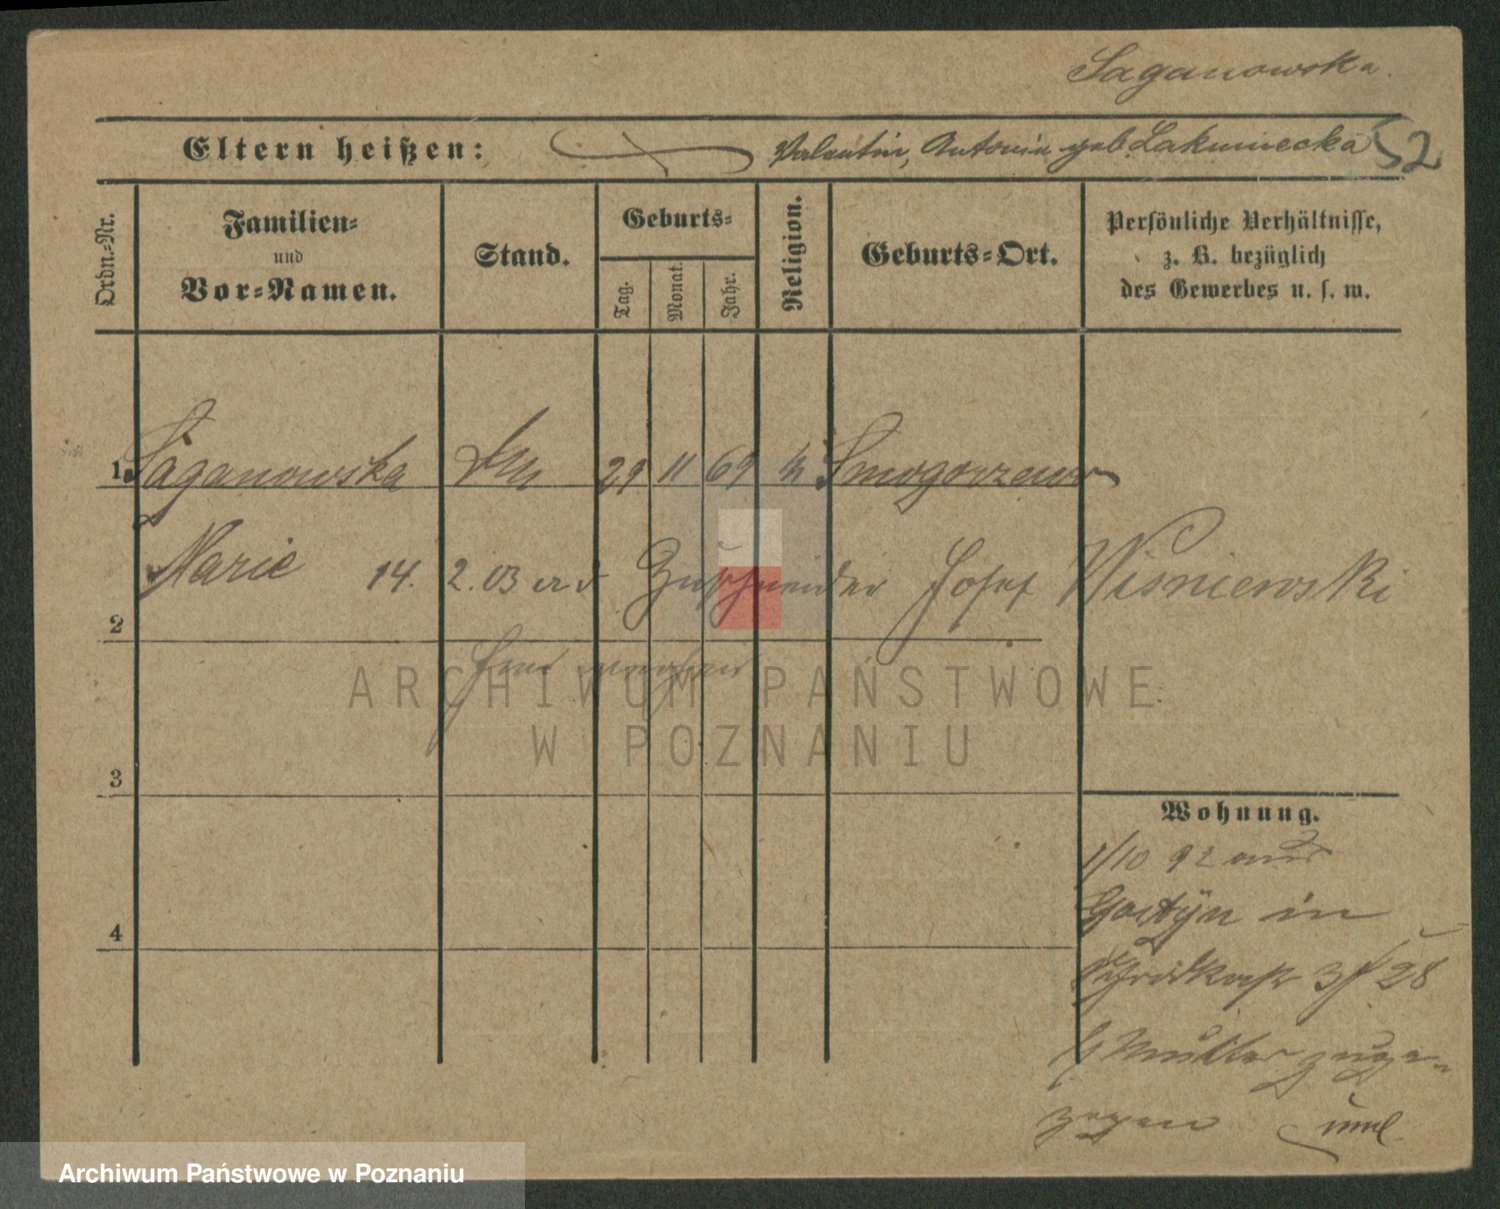 Saganowska
Eltern heißen: Valentin, Antonie geb. Lakumiecka 52
Ordn.-Nr.
Familien-
und
Vor-Namen.
Stand.
Geburts-
Tag.
Monat.
Jahr.
Religion.
Geburts-Ort.
Persönliche Verhältnisse,
z. B. bezüglich
des Gewerbes u. s. w.
1 Saganowska 29 11 69 k Smogorzewo
Marie 14. 2. 03 Zuschneider Josef Wisniewski
2
3
4
Wohnung.
1/10 92 aus
Gostyn in
28
b/ Müller zuge-
zogen
ARCHIWUM PAŃSTWOWE
W POZNANIU
Archiwum Państwowe w Poznaniu